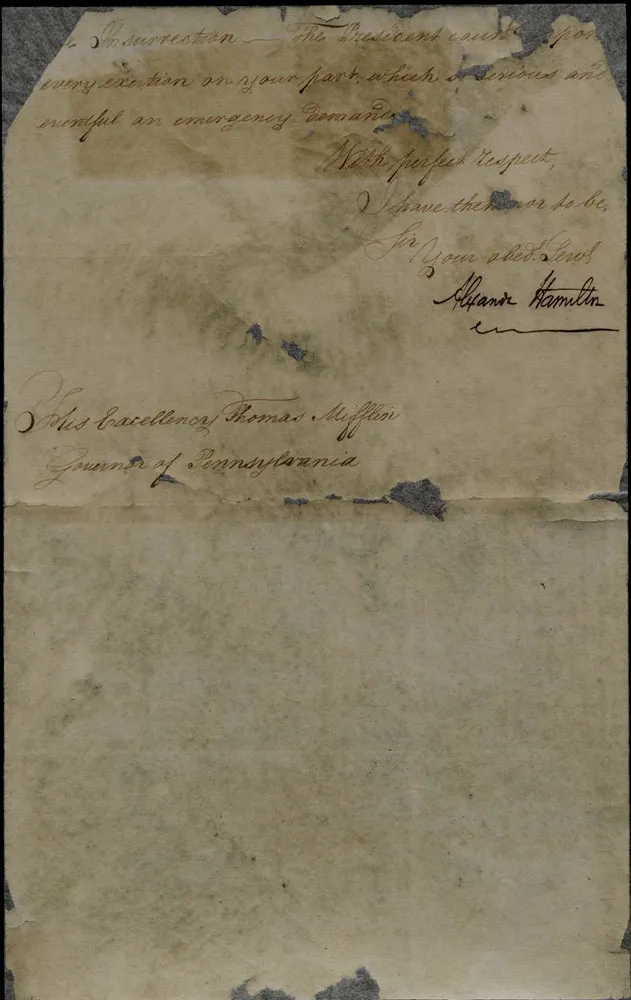 Insurrection — The President counts upon
every exertion on your part, which so serious and
eventful an emergency demands
With perfect respect,
I have the honor to be,
Sir
Your obed. Servt
Alexander Hamilton
His Excellency Thomas Mifflin
Governor of Pennsylvania